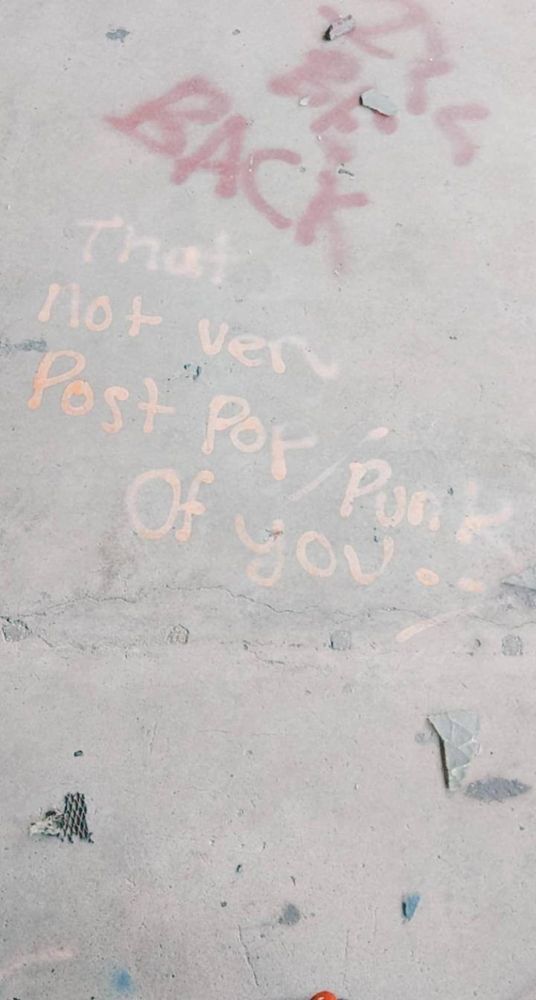 BACK
That
not very
Post Por/Punk
Of you...